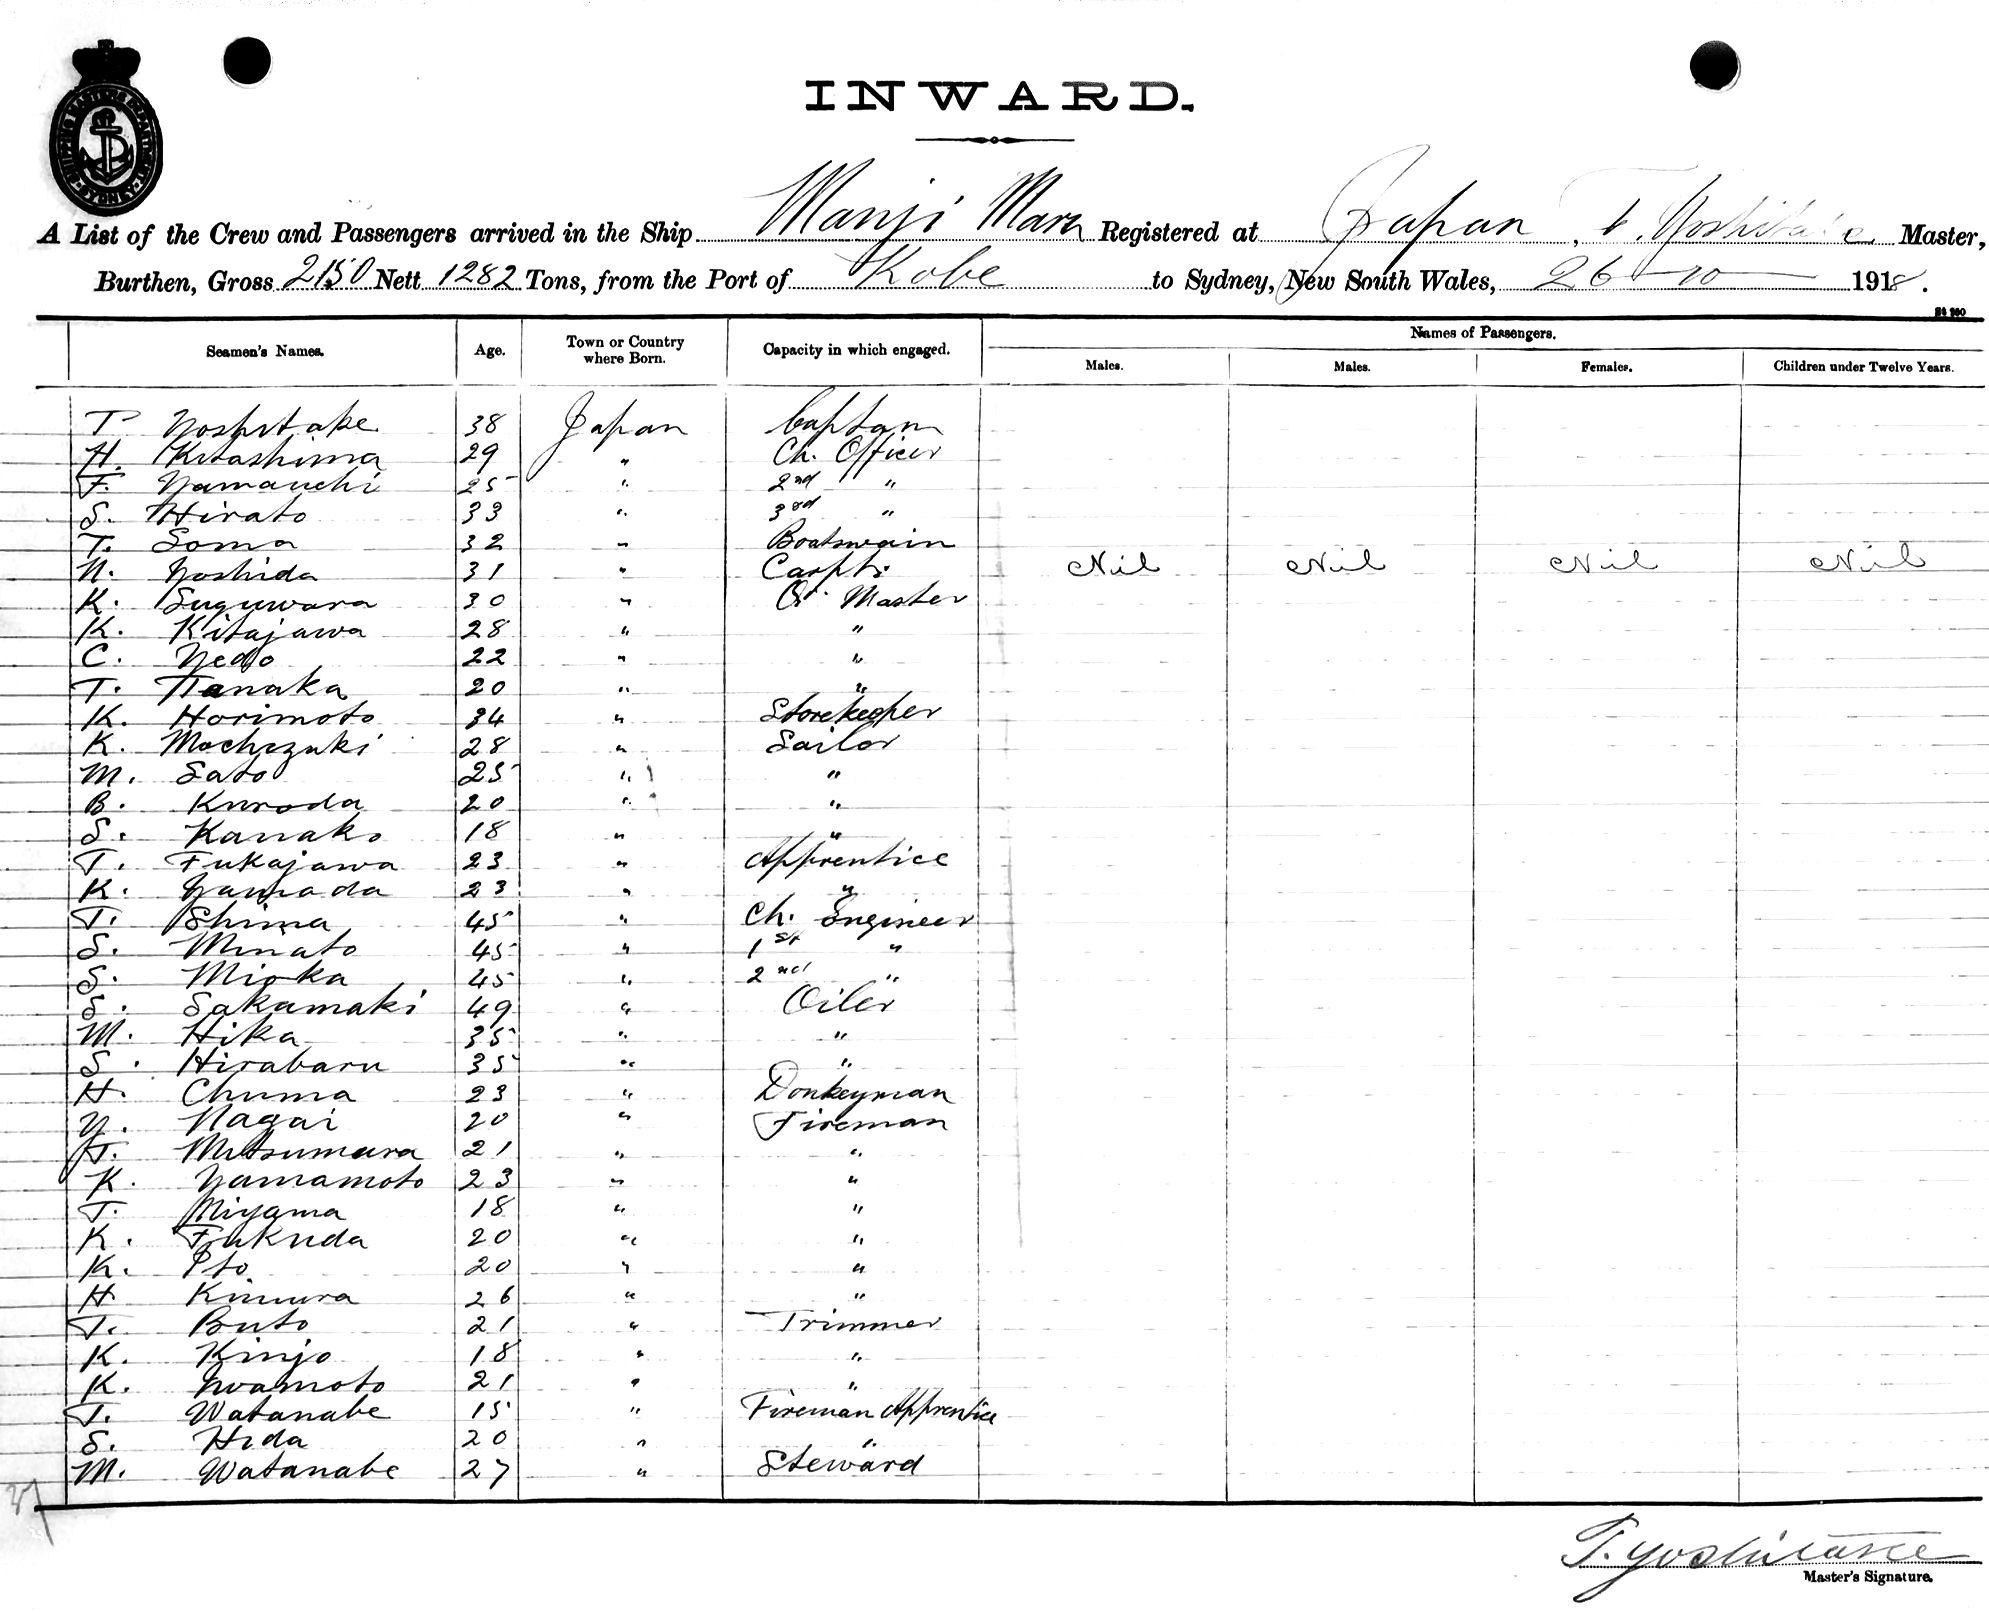 SHIPPING MASTERS DEPARTMENT SYDNEY
INWARD.
A List of the Crew and Passengers arrived in the Ship Manji Maru Registered at Japan T. Yoshitake Master,
Burthen, Gross 2150 Nett 1282 Tons, from the Port of Kobe to Sydney, New South Wales, 26-10- 1918.
Names of Passengers.
Seamen's Names. Age. Town or Country where Born. Capacity in which engaged. Males. Males. Females. Children under Twelve Years.
T Yoshitake 38 Japan Captam
H. Kitashima 29 " Ch. Officer
F. Yamauchi 25 " 2nd "
S. Hirato 33 " 3rd "
T. Soma 32 " Boatswain
N. Yoshida 31 " Carptr Nil Nil Nil Nil
K. Suguwara 30 " Qr. Master
K. Kitajawa 28 " "
C. Yedo 22 " "
T. Tanaka 20 " "
K. Horimoto 34 " Storekeeper
K. Mochizuki 28 " Sailor
M. Sato 25 " "
B. Kuroda 20 " "
S. Kanako 18 " "
T. Fukajawa 23 " Apprentice
K. Yamada 23 " "
T. Shima 45 " Ch. Engineer
S. Minato 45 " 1st "
S. Mioka 45 " 2nd "
S. Sakamaki 49 " Oiler
M. Hika 35 " "
S. Hirabaru 35 " "
H. Chuma 23 " Donkeyman
Y. Nagai 20 " Fireman
T. Mitsumura 21 " "
K. Yamamoto 23 " "
T. Miyama 18 " "
K. Fukuda 20 " "
K. Ito 20 " "
H Kimura 26 " "
T. Buto 21 " Trimmer
K. Kinjo 18 " "
K. Iwamoto 21 " "
T. Watanabe 15 " Fireman Apprentice
S. Hida 20 " "
M. Watanabe 27 " Steward
37
T. Yoshitake
Master's Signature.